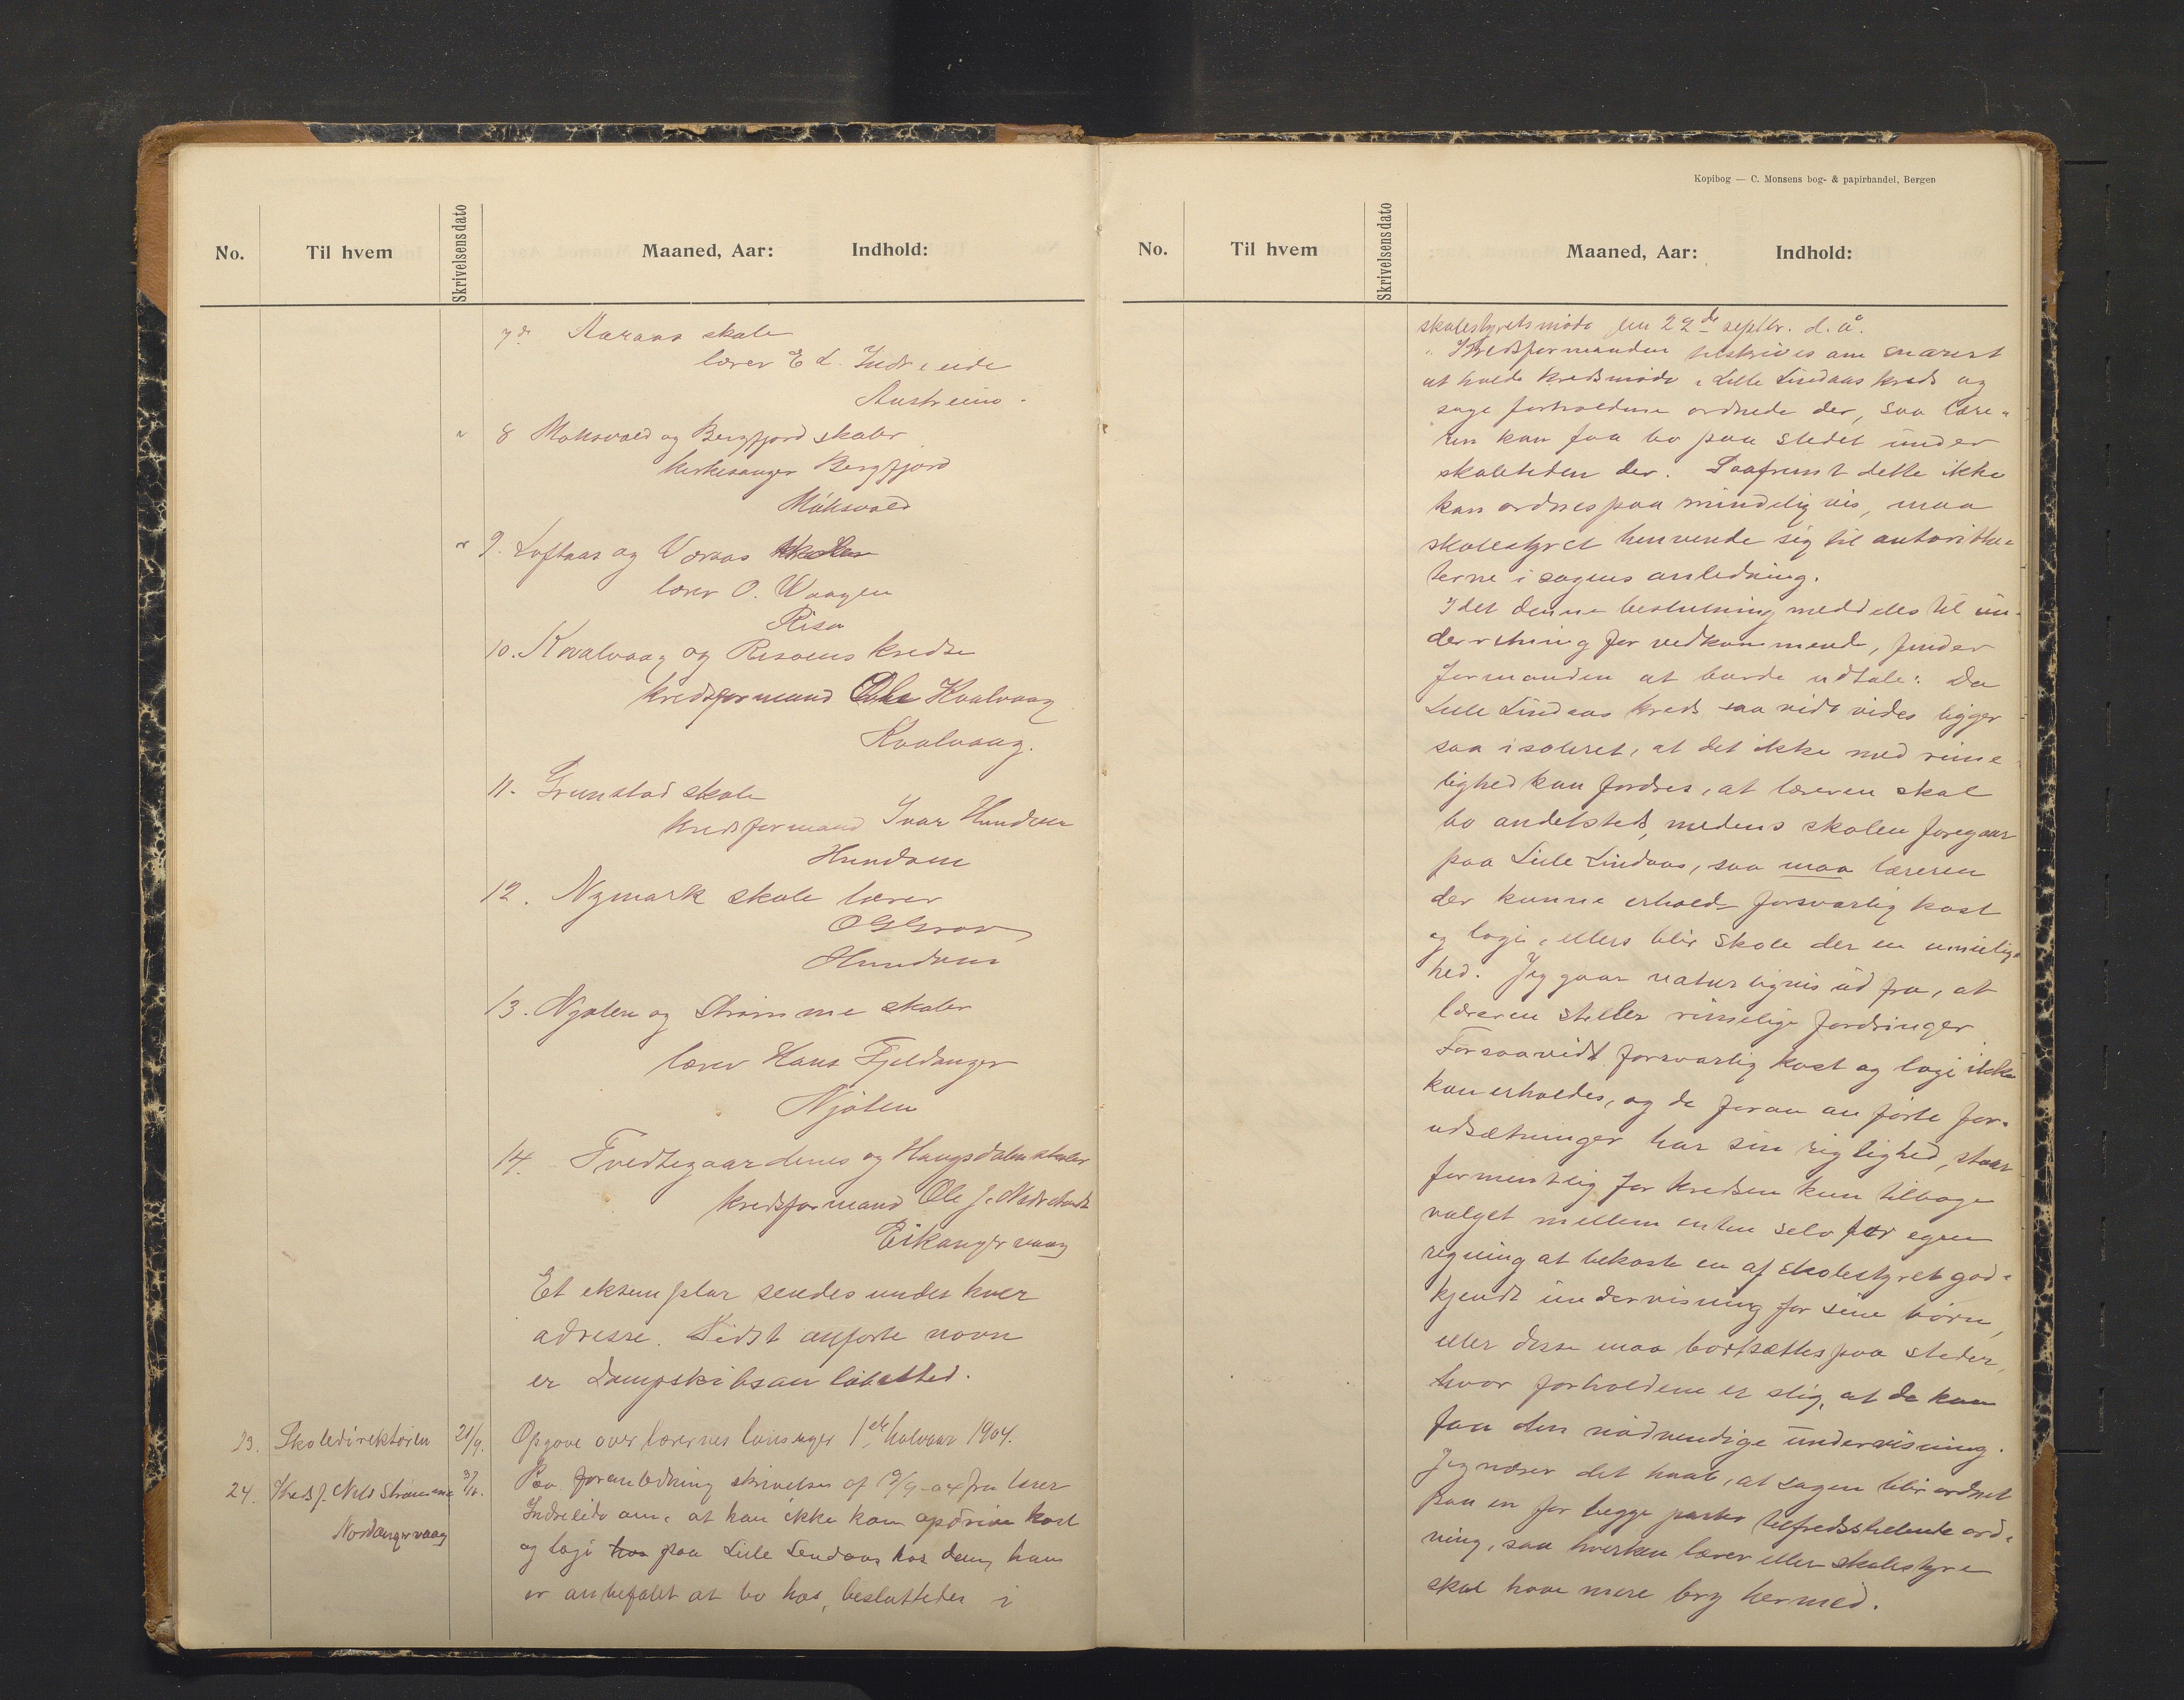 No.
Til hvem
Skrivelsensdato
Maaned, Aar: Indhold:
7de Aaraas skole
lærer E d. Indreeide
Austreim.
" 8 Moksvold og Bergfjord skoler
kirkesanger Bergfjord
Moksvold
" 9. Loftaas og Voraas skoler
lærer O. Waagen
Risa
10. Kvalvaag og Risøens kredse
kredsformand Ole Kvalvaag
Kvalvaag.
11. Grunstad skole
kredsformand Ivar Hundven
Hundven
12. Nymark skole lærer
O G Grov
Hundven
13. Njøten og Strømme skoler
lærer Hans Fjeldanger
Njøten
14. Tvedtegaardenes og Haugsdalen skoler
kredsformand Ole J.
Eikangervaag
Et eksemplar sendes under hver
adresse. Sidst anførte navn
er Dampskibsanløbssted.
23. Skoledirektøren 21/9. Opgave over lærernes lønninger 1ste halvaar 1904.
24. Kredsf. Nils Strømme 3/10. Paa foranledning skrivelse af 19/9-04 fra lærer
Nordangervaag
Indreeide om, at han ikke kan opdrive kost
og logi hos paa Lille Lindaas hos dem, han
er anbefalet at bo hos, besluttedes i
Kopibog — C. Monsens bog- & papirhandel, Bergen
No.
Til hvem
Skrivelsensdato
Maaned, Aar: Indhold:
skolestyretsmøde den 22de septbr. d. å.
"Kredsformanden tilskrives om snarest
at holde kredsmøde i Lille Lindaas kreds og
søge forholdene ordnede der, saa lære-
ren kan faa bo paa stedet under
skoletiden der. Saafremt dette ikke
kan ordnes paa mindelig vis, maa
skolestyret henvende sig til autorithe-
terne i sagens anledning.
Idet denne beslutning meddeles til un-
derretning for vedkommende, finder
formanden at burde udtale: Da
Lille Lindaas kreds saavidt vides ligger
saa isoleret, at det ikke med rime-
lighed kan fordres, at læreren skal
bo andetsteds, medens skolen foregaar
paa Lille Lindaas, saa maa læreren
der kunne erholde forsvarlig kost
og logi, ellers blir skole der en umulig-
hed. Jeg gaar naturligvis ud fra, at
læreren stiller rimelige fordringer
Forsaavidt forsvarlig kost og logi ikke
kan erholdes, og de foran anførte for-
udsætninger har sin rigtighed, staar
formentlig for kredsen kun tilbage
valget mellem enten selv for egen
regning at bekoste en af skolestyret god-
kjendt undervisning for sine børn,
eller disse maa bortsættes paa steder,
hvor forholdene er slig, at de kan
faa den nødvendige undervisning.
Jeg nærer det haab, at sagen blir ordnet
paa en for begge parter tilfredsstillende ord-
ning, saa hverken lærer eller skolestyre
skal have mere bry hermed.